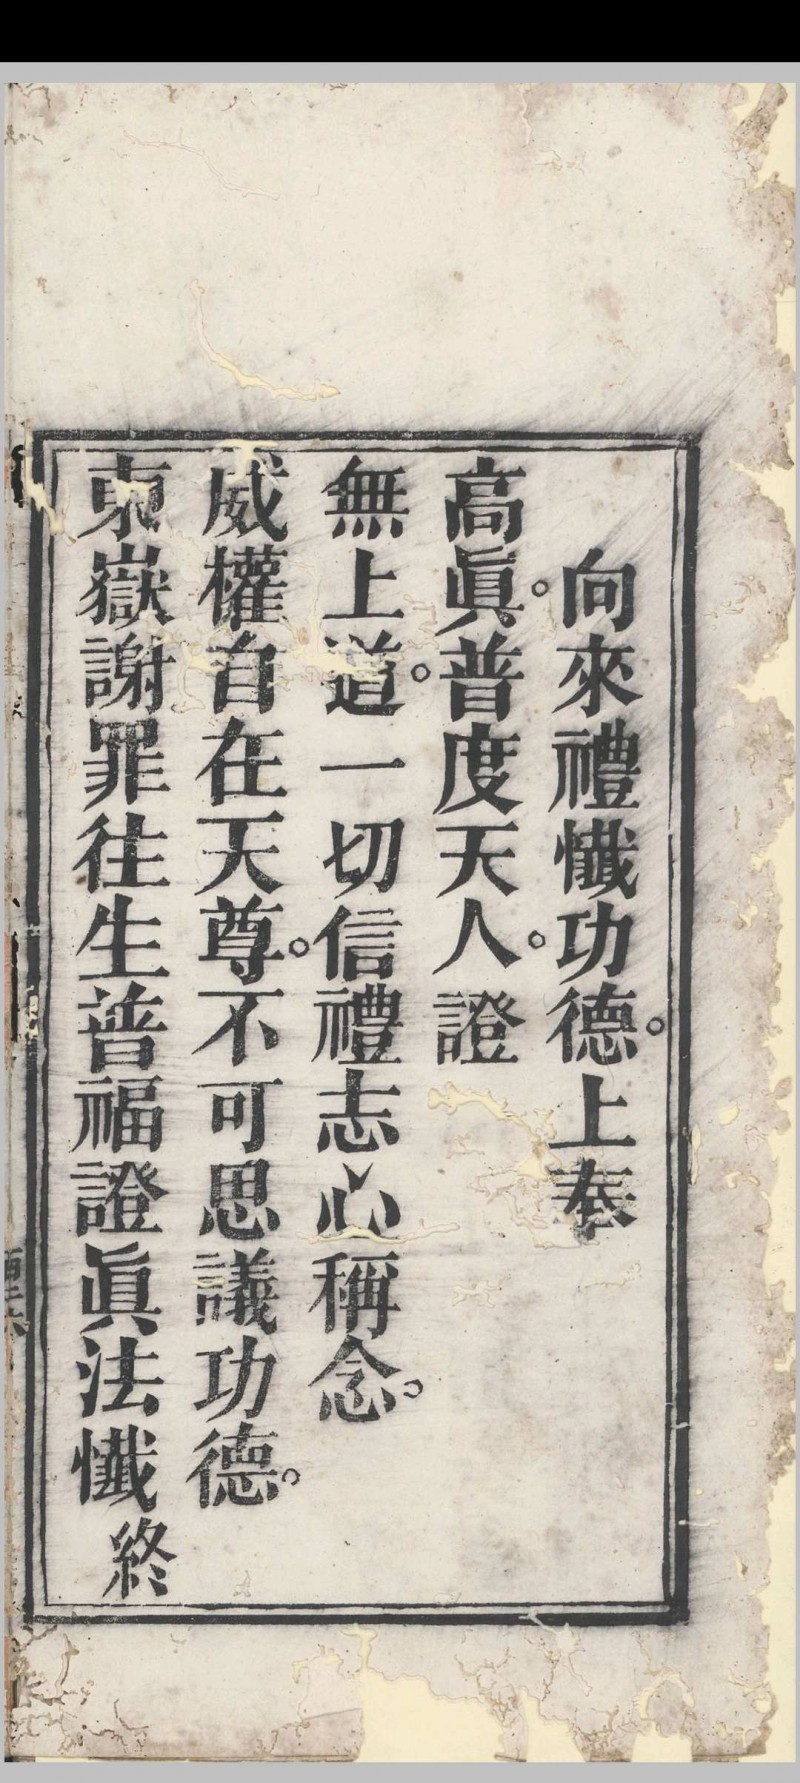 向來禮懺功德。上奉
高眞。普度天人。證
無上道。一切信禮志心稱念。
威權自在天尊。不可思議功德。
東嶽謝罪往生普福證眞法懺 終